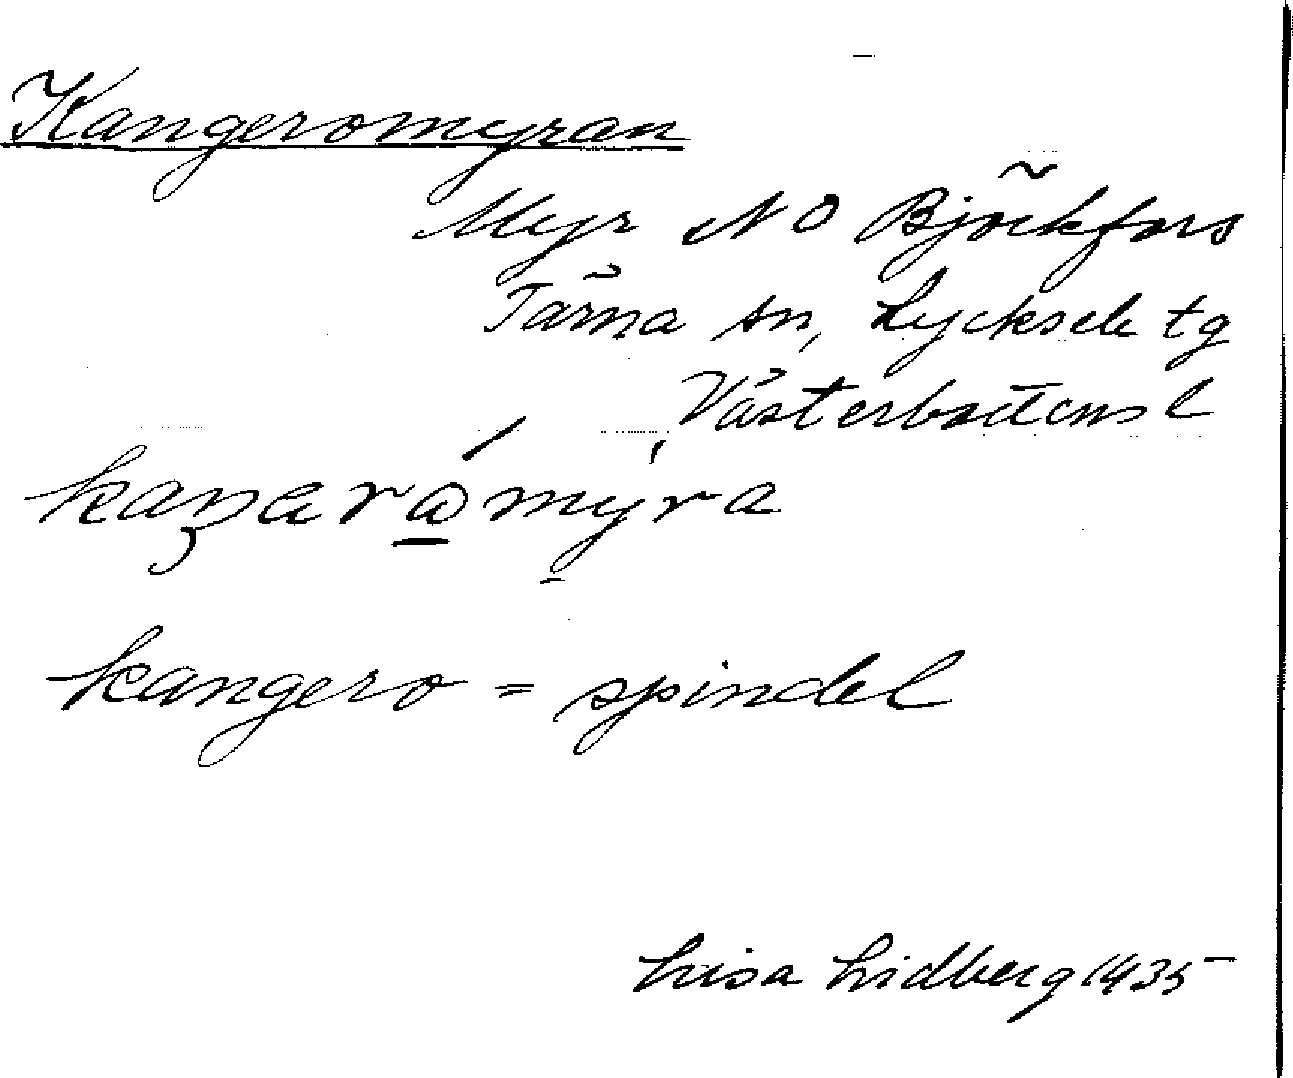 Kangeromyran
Myr NO Björkfors
Tärna sn, Lycksele tg
Västerbottens l
kangero = spindel
Lisa Lidberg 1935